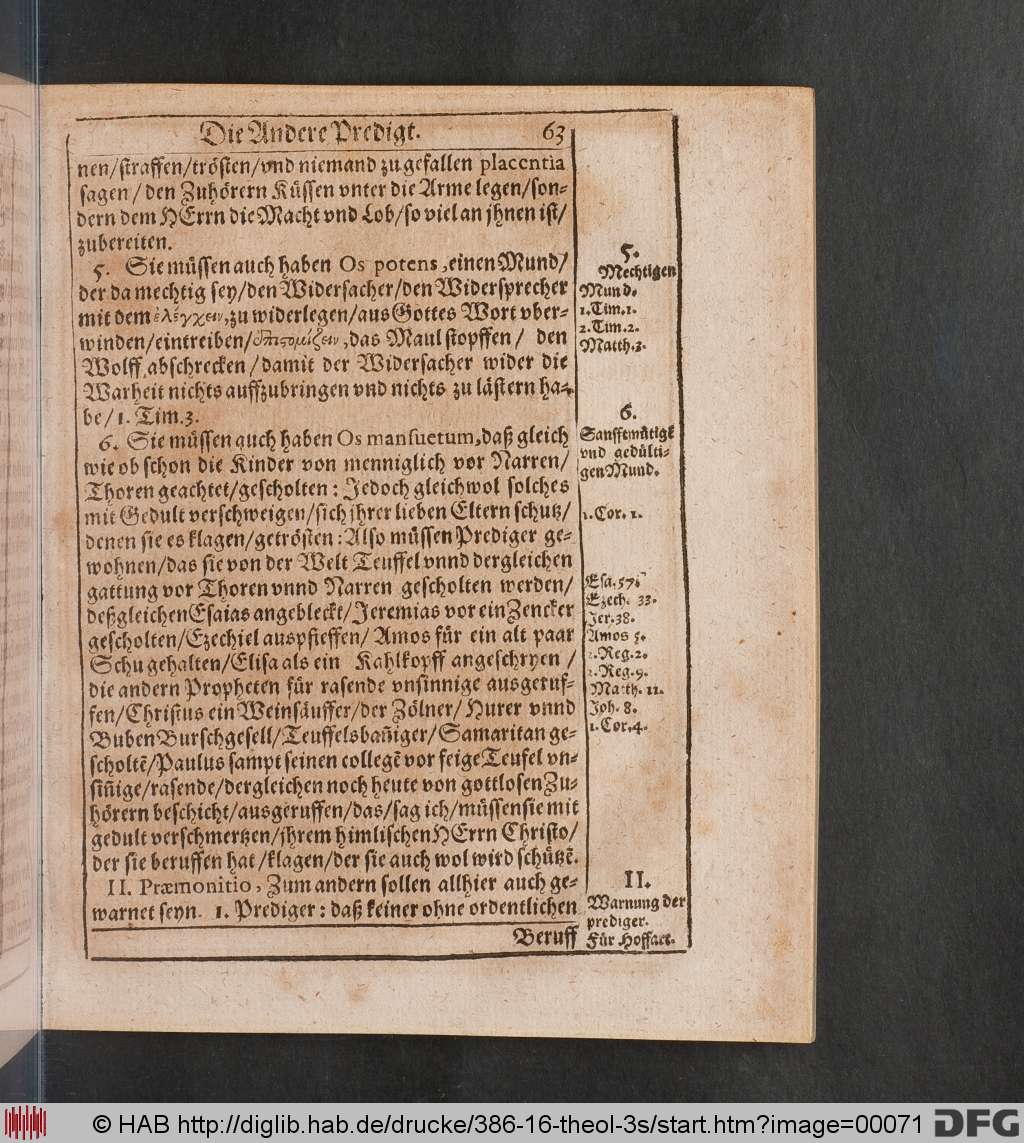 Die Andere Predigt. 63
nen/straffen/trösten/vnd niemand zu gefallen placentia
sagen/den Zuhörern Küssen vnter die Arme legen/son-
dern dem HErrn die Macht vnd Lob/so viel an jhnen ist/
zubereiten.
5. Sie müssen auch haben Os potens, einen Mund/
der da mechtig sey/den Widersacher/den Widersprecher
mit dem ἐλέγχειν, zu widerlegen/aus Gottes Wort vber-
winden/eintreiben/ἐπιστομίζειν, das Maul stopffen/ den
Wolff abschrecken/damit der Widersacher wider die
Warheit nichts auffzubringen vnd nichts zu lästern ha-
be/1. Tim.3.
6. Sie müssen auch haben Os mansuetum, daß gleich
wie ob schon die Kinder von menniglich vor Narren/
Thoren geachtet/gescholten: Jedoch gleichwol solches
mit Gedult verschweigen/sich jhrer lieben Eltern schutz/
denen sie es klagen/getrösten: Also müssen Prediger ge-
wohnen/das sie von der Welt Teuffel vnnd dergleichen
gattung vor Thoren vnnd Narren gescholten werden/
deßgleichen Esaias angebleckt/Jeremias vor ein Zencker
gescholten/Ezechiel auspfieffen/Amos für ein alt paar
Schu gehalten/Elisa als ein Kahlkopff angeschryen/
die andern Propheten für rasende vnsinnige ausgeruf-
fen/Christus ein Weinsäuffer/der Zölner/Hurer vnnd
Buben Burschgesell/Teuffelsbañiger/Samaritan ge-
scholtẽ/Paulus sampt seinen collegẽ vor feige Teufel vn-
siñige/rasende/dergleichen noch heute von gottlosen Zu-
hörern beschicht/ausgeruffen/das/sag ich/müssen sie mit
gedult verschmertzen/jhrem himlischen HErrn Christo/
der sie beruffen hat/klagen/der sie auch wol wird schützẽ.
II. Præmonitio, Zum andern sollen allhier auch ge-
warnet seyn. 1. Prediger: daß keiner ohne ordentlichen
Beruff
5.
Mechtigen
Mund.
1.Tim.1.
2.Tim.2.
Matth.3.
6.
Sanfftmütigẽ
vnd gedülti-
gen Mund.
1.Cor. 1.
Esa.57.
Ezech. 33.
Jer.38.
Amos 5.
2.Reg.2.
2.Reg.9.
Matth. 11.
Joh. 8.
1.Cor.4.
II.
Warnung der
prediger.
Für Hoffart.
© HAB http://diglib.hab.de/drucke/386-16-theol-3s/start.htm?image=00071
DFG